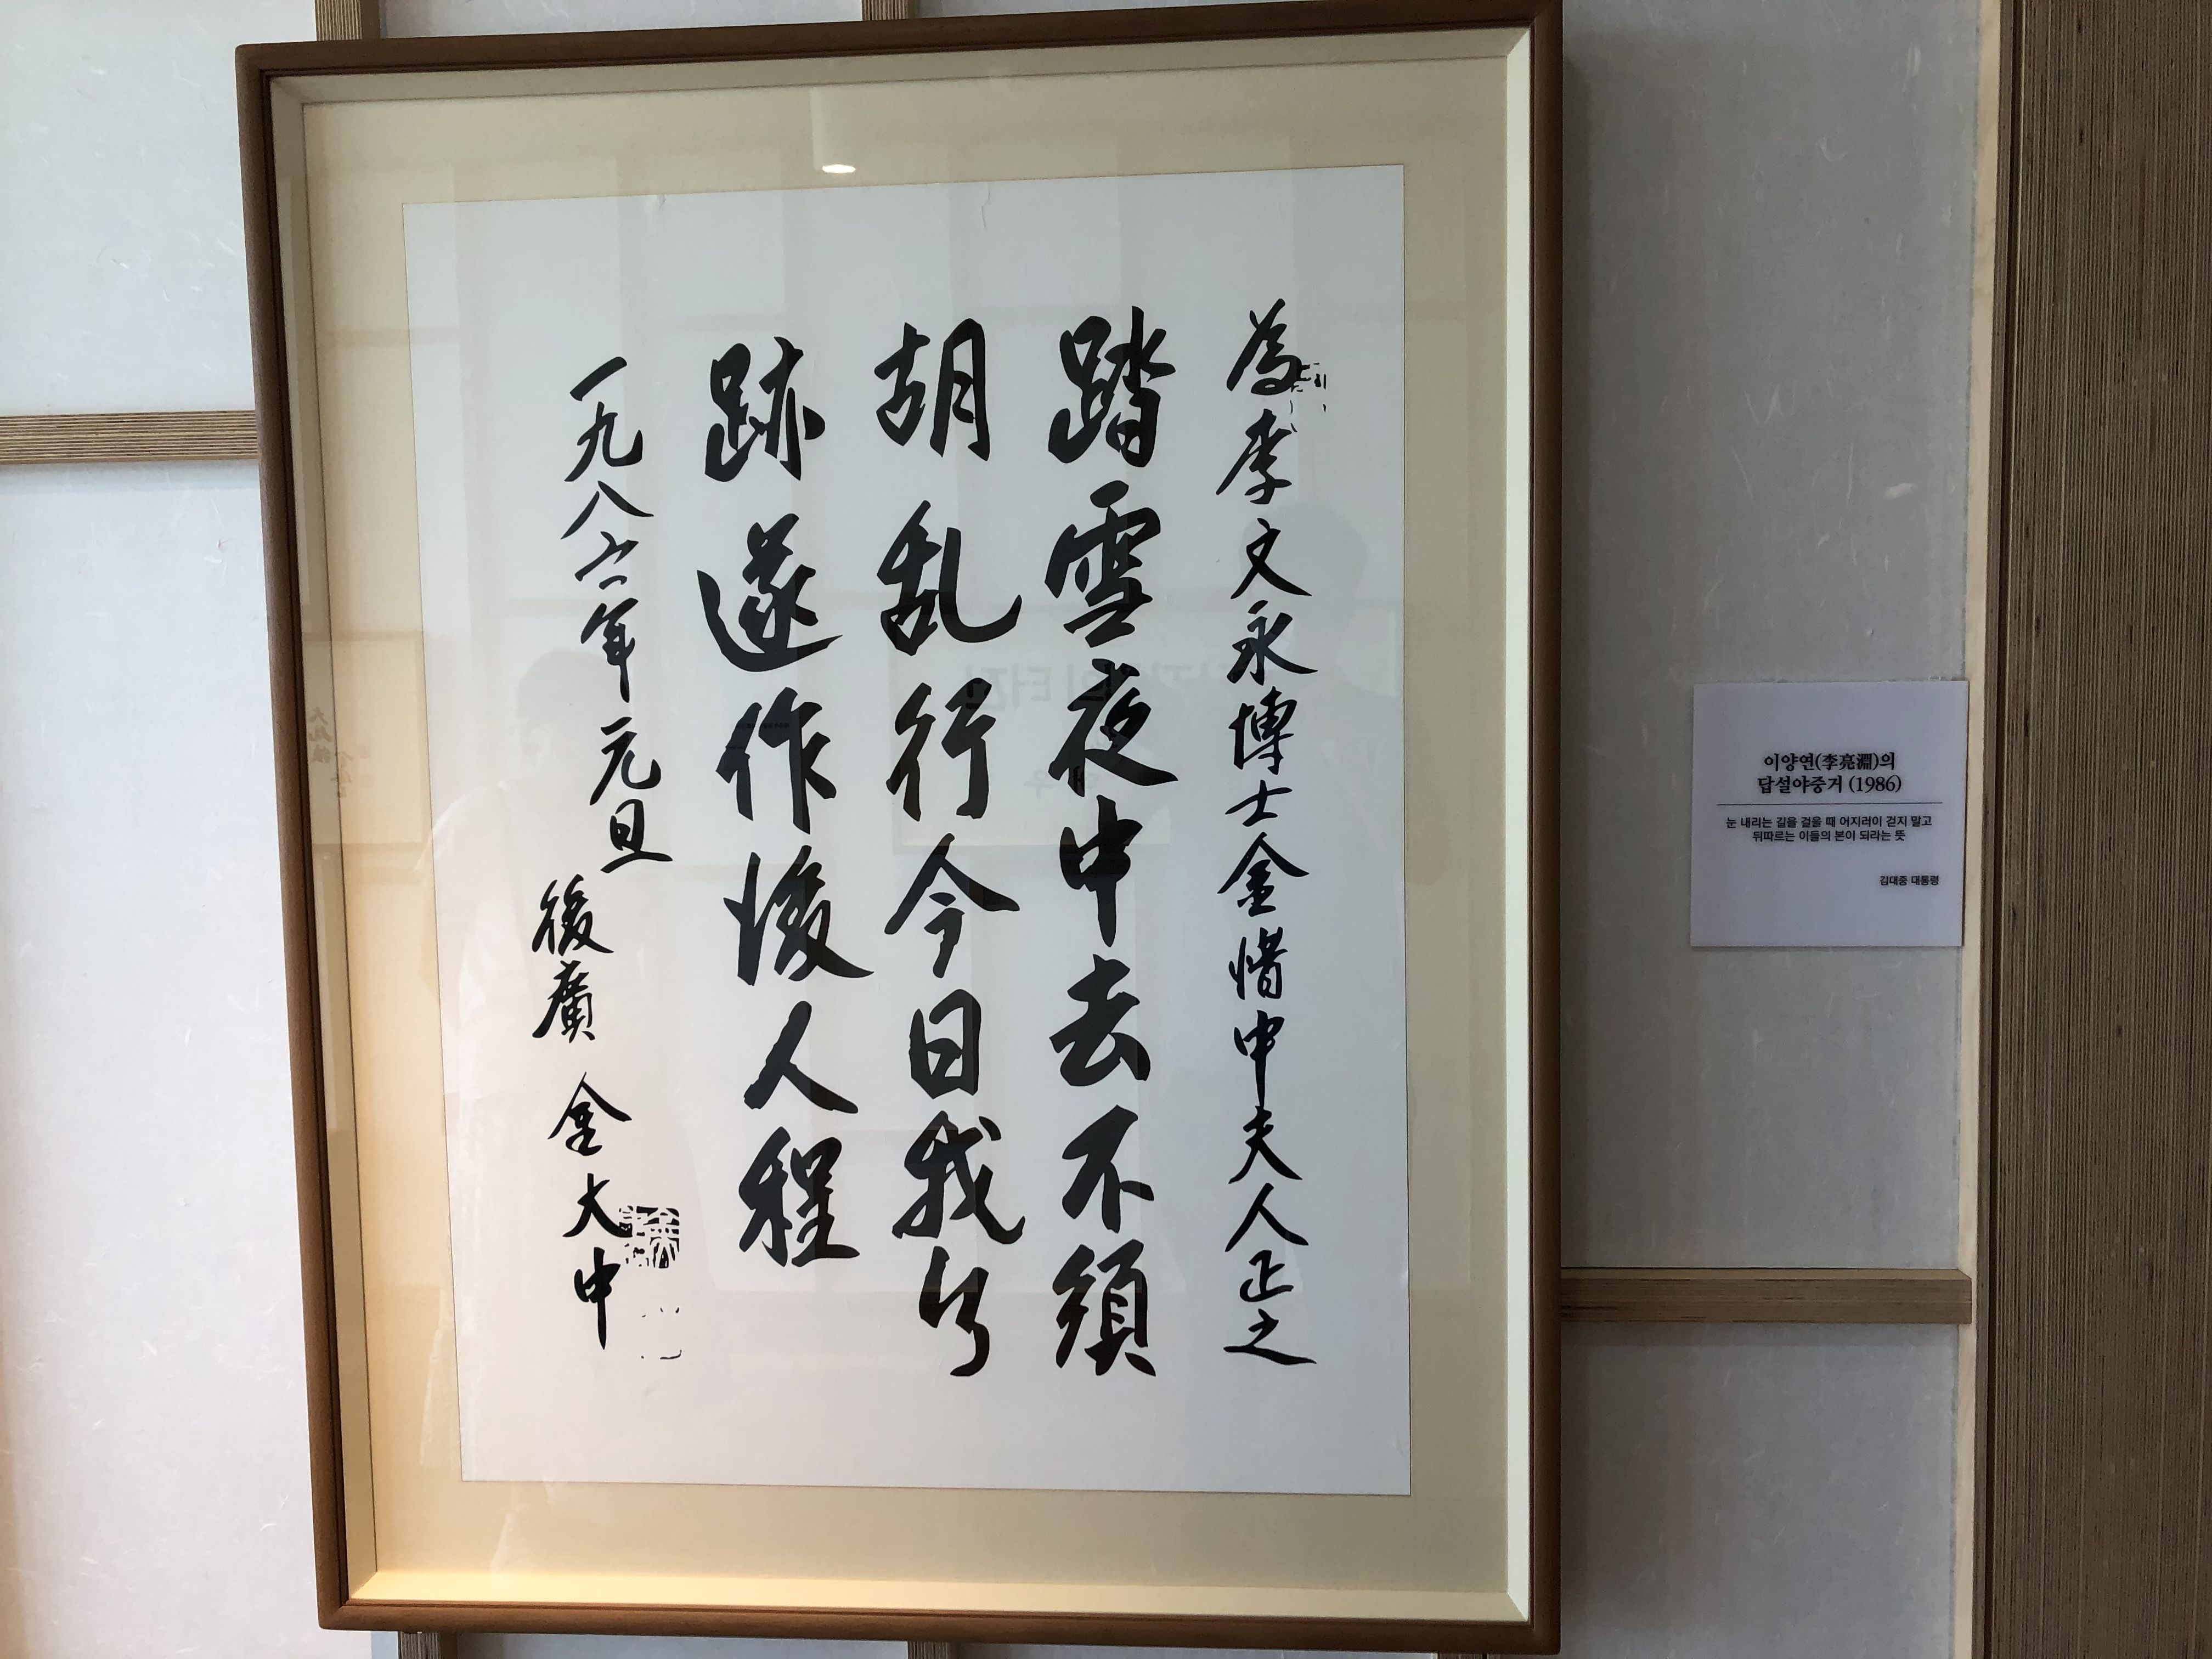 為李文永博士金惜中夫人正之
踏雪夜中去不須
胡乱行今日我兮
跡遂作後人程
一九八六年元旦
後廣 金大中
이양연(李亮淵)의
답설야중거 (1986)
눈 내리는 길을 걸을 때 어지러이 걷지 말고
뒤따르는 이들의 본이 되라는 뜻
김대중 대통령